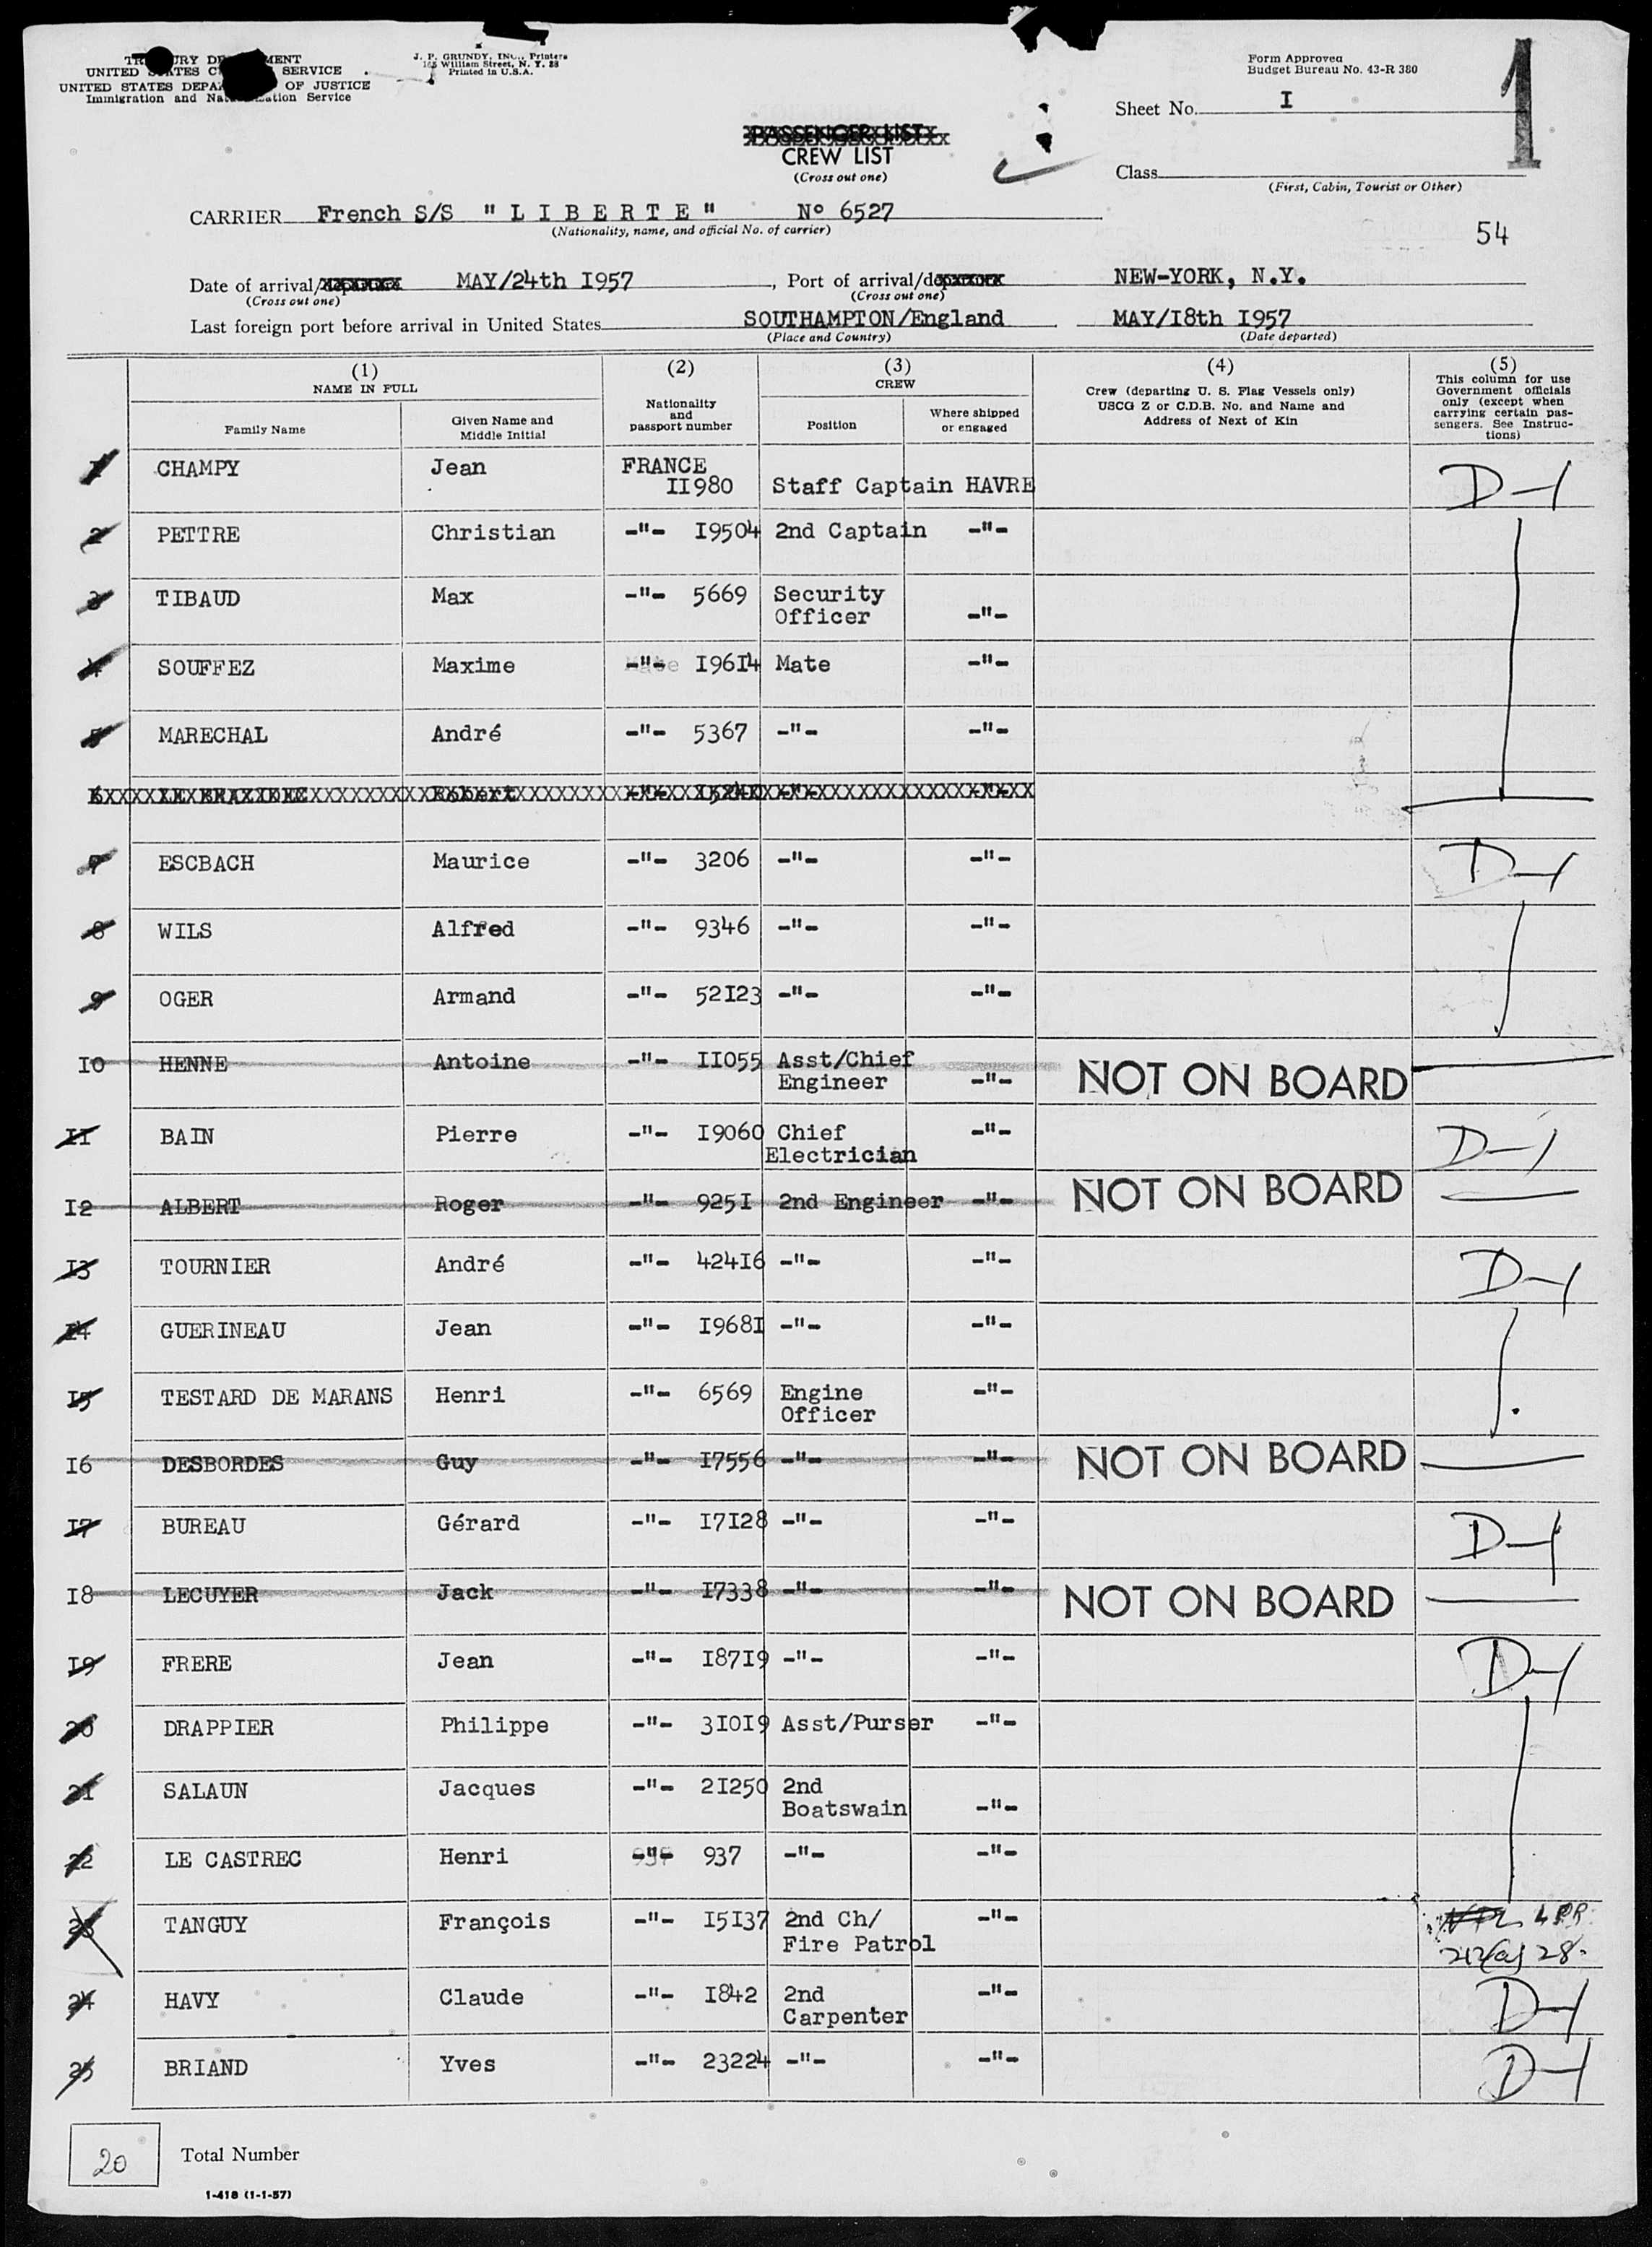 UNITED STATES SERVICE
UNITED STATES OF JUSTICE
Immigration and Service
J. P. GRUNDY, INC., Printers
165 William Street, N. Y. 38
Printed in U.S.A.
Form Approved
Budget Bureau No. 43-R 380
1
Sheet No. I
PASSENGER LIST
CREW LIST
(Cross out one)
Class
(First, Cabin, Tourist or Other)
CARRIER French S/S " L I B E R T E " Nº 6527
(Nationality, name, and official No. of carrier)
54
Date of arrival/departure MAY/24th I957, Port of arrival/departure NEW-YORK, N.Y.
(Cross out one) (Cross out one)
Last foreign port before arrival in United States SOUTHAMPTON/England MAY/I8th I957
(Place and Country) (Date departed)
(1) (2) (3) (4) (5)
NAME IN FULL
Family Name
Given Name and
Middle Initial
Nationality
and
passport number
CREW
Position
Where shipped
or engaged
Crew (departing U. S. Flag Vessels only)
USCG Z or C.D.B. No. and Name and
Address of Next of Kin
This column for use
Government officials
only (except when
carrying certain pas-
sengers. See Instruc-
tions)
1 CHAMPY Jean FRANCE
II980 Staff Captain HAVRE D-1
2 PETTRE Christian -"- I9504 2nd Captain -"-
3 TIBAUD Max -"- 5669 Security
Officer -"-
4 SOUFFEZ Maxime -"- I96I4 Mate -"-
5 MARECHAL André -"- 5367 -"- -"-
6 Robert -"- I5240 -"- -"-
7 ESCBACH Maurice -"- 3206 -"- -"- D-1
8 WILS Alfred -"- 9346 -"- -"-
9 OGER Armand -"- 52I23 -"- -"-
I0 HENNE Antoine -"- II055 Asst/Chief
Engineer -"- NOT ON BOARD
II BAIN Pierre -"- I9060 Chief -"- D-1
Electrician
I2 ALBERT Roger -"- 925I 2nd Engineer -"- NOT ON BOARD
I3 TOURNIER André -"- 424I6 -"- -"- D-1
I4 GUERINEAU Jean -"- I968I -"- -"-
I5 TESTARD DE MARANS Henri -"- 6569 Engine -"-
Officer
I6 DESBORDES Guy -"- I7556 -"- -"- NOT ON BOARD
I7 BUREAU Gérard -"- I7I28 -"- -"- D-1
I8 LECUYER Jack -"- I7338 -"- -"- NOT ON BOARD
I9 FRERE Jean -"- I87I9 -"- -"- D-1
20 DRAPPIER Philippe -"- 3I0I9 Asst/Purser -"-
2I SALAUN Jacques -"- 2I250 2nd
Boatswain -"-
22 LE CASTREC Henri -"- 937 -"- -"-
23 TANGUY François -"- I5I37 2nd Ch/ -"-
Fire Patrol
24 HAVY Claude -"- I842 2nd -"- D-1
Carpenter
25 BRIAND Yves -"- 23224 -"- -"- D-1
20 Total Number
1-418 (1-1-57)